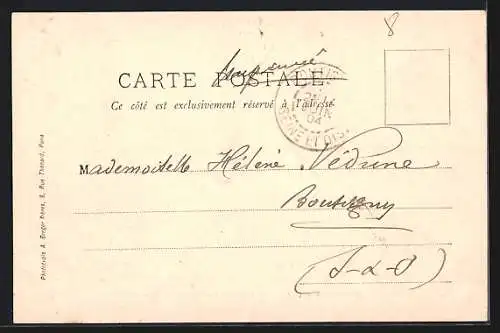 8
Imprimé
CARTE POSTALE
Ce côté est exclusivement réservé à l'adresse
JUIN
04
SEINE ET OISE
Mademoiselle Hélène Védrine
Boutigny
(S-&-O)
Photocopie A. Bergeret
Rue Thénard, Paris